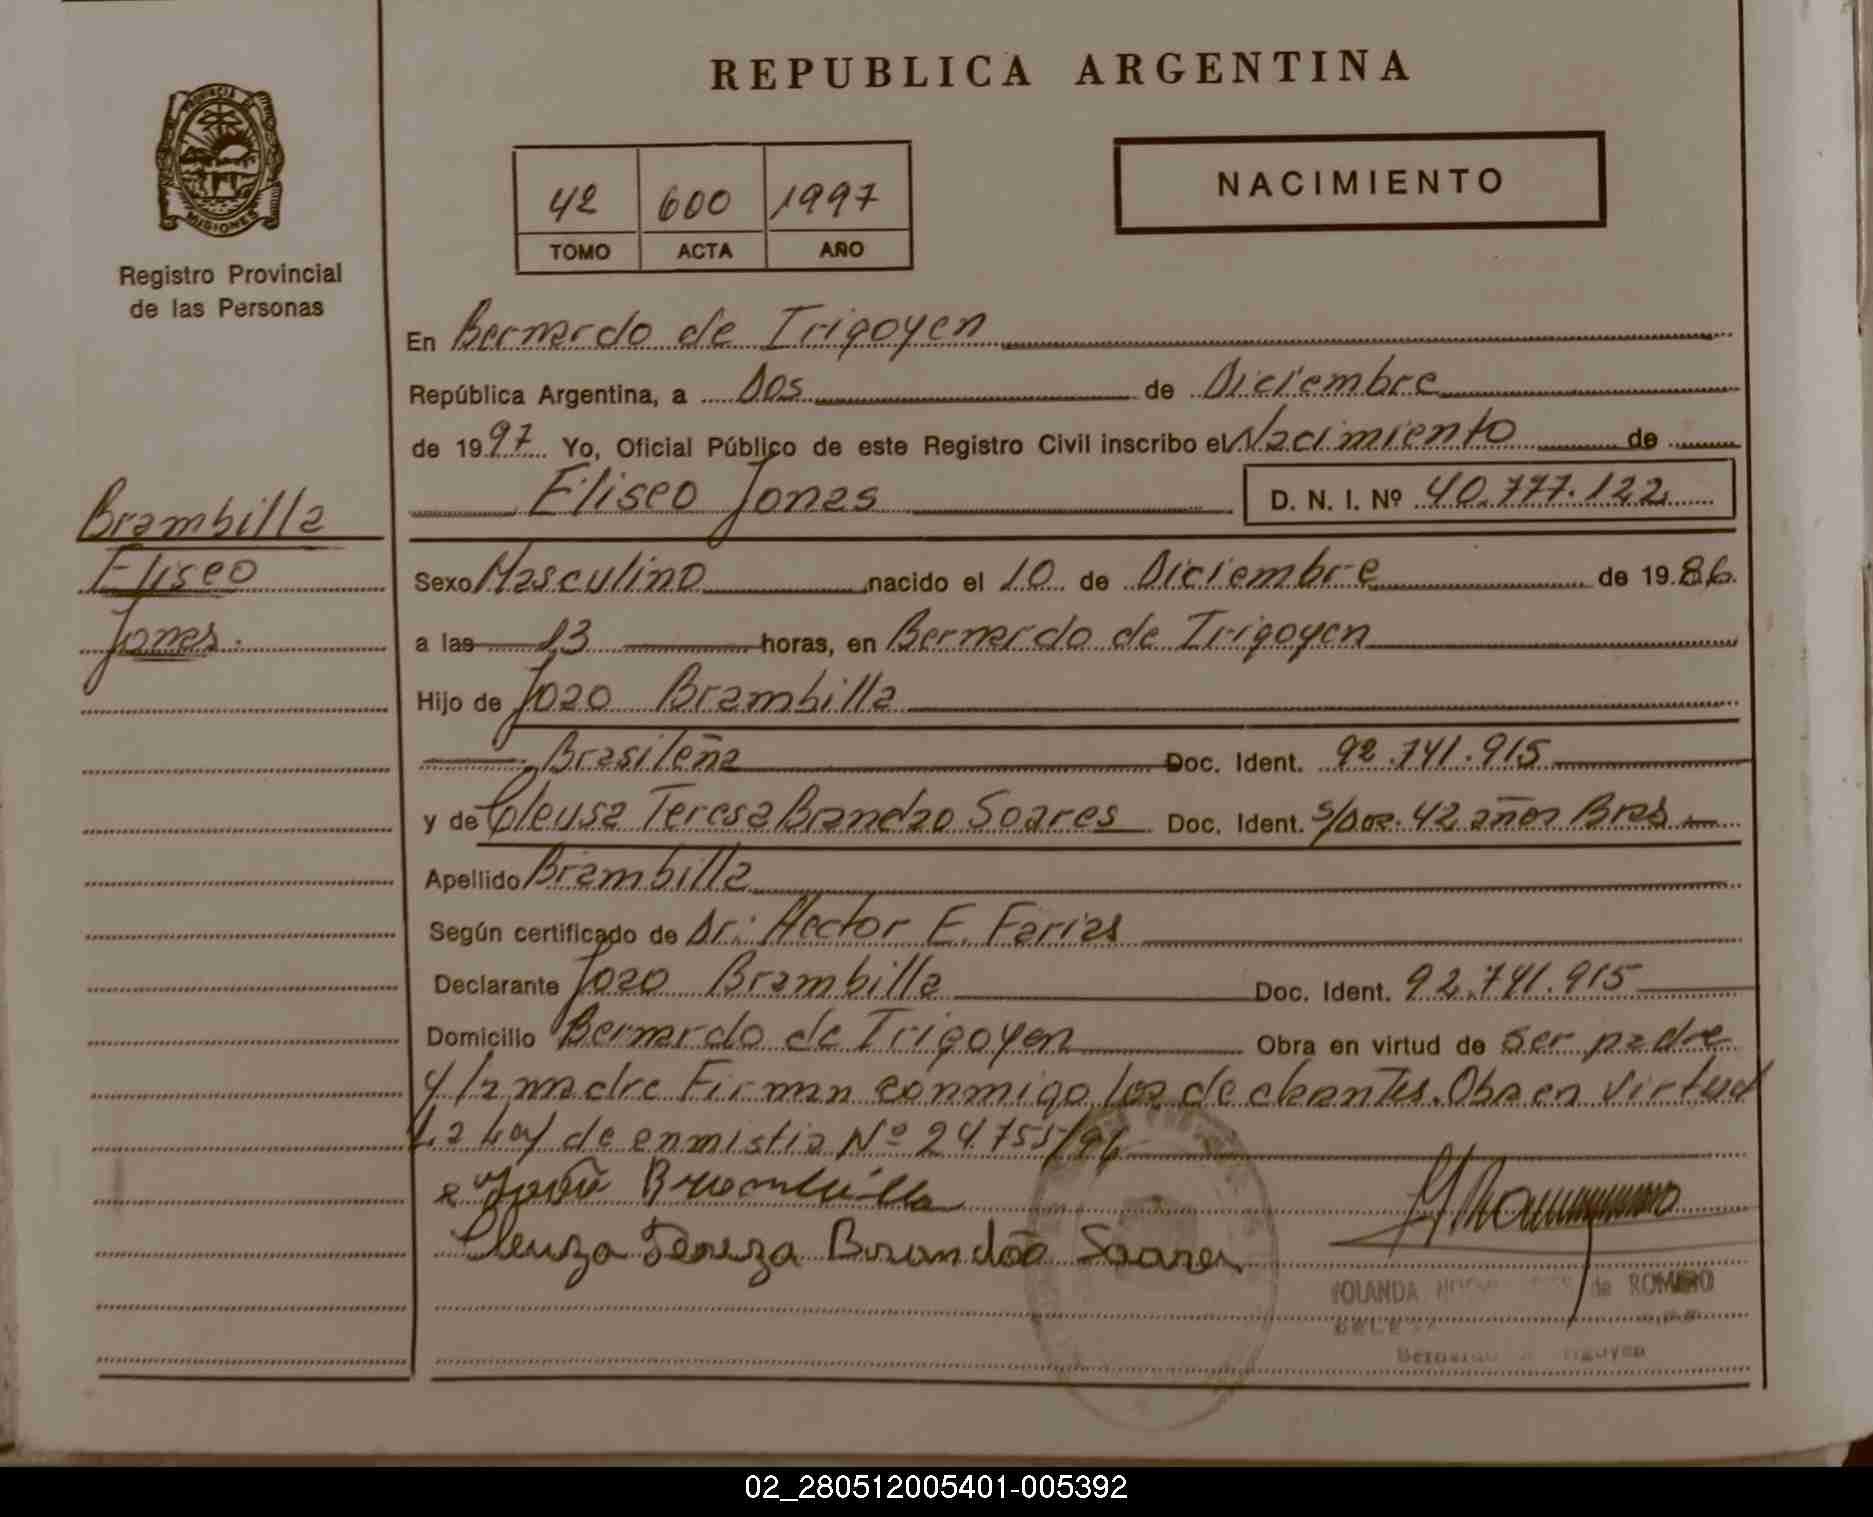 REPUBLICA ARGENTINA
PROVINCIA D
MISIONES
Registro Provincial
de las Personas
42 600 1997
TOMO ACTA AÑO
NACIMIENTO
En Bernardo de Irigoyen
República Argentina, a Dos de Diciembre
de 1997 Yo, Oficial Público de este Registro Civil inscribo el Nacimiento de
Eliseo Jonas D. N. I. Nº 40.777.122
Brambilla
Eliseo
Jonas.
Sexo Masculino nacido el 10 de Diciembre de 1986.
a las 13 horas, en Bernardo de Irigoyen
Hijo de Joao Brambilla
Brasileña Doc. Ident. 92.741.915
y de Cleusa Teresa Brandao Soares Doc. Ident. s/Doc. 42 años Bras
Apellido Brambilla
Según certificado de Dr. Hector E. Farias
Declarante Joao Brambilla Doc. Ident. 92.741.915
Domicilio Bernardo de Irigoyen Obra en virtud de ser padre
y la madre Firman conmigo los Obra en virtud
La Ley de Nº 24.755/96
João Brambilla
Cleuza Tereza Brandão Soares
YOLANDA de ROMERO
Bernardo de Irigoyen
02_280512005401-005392